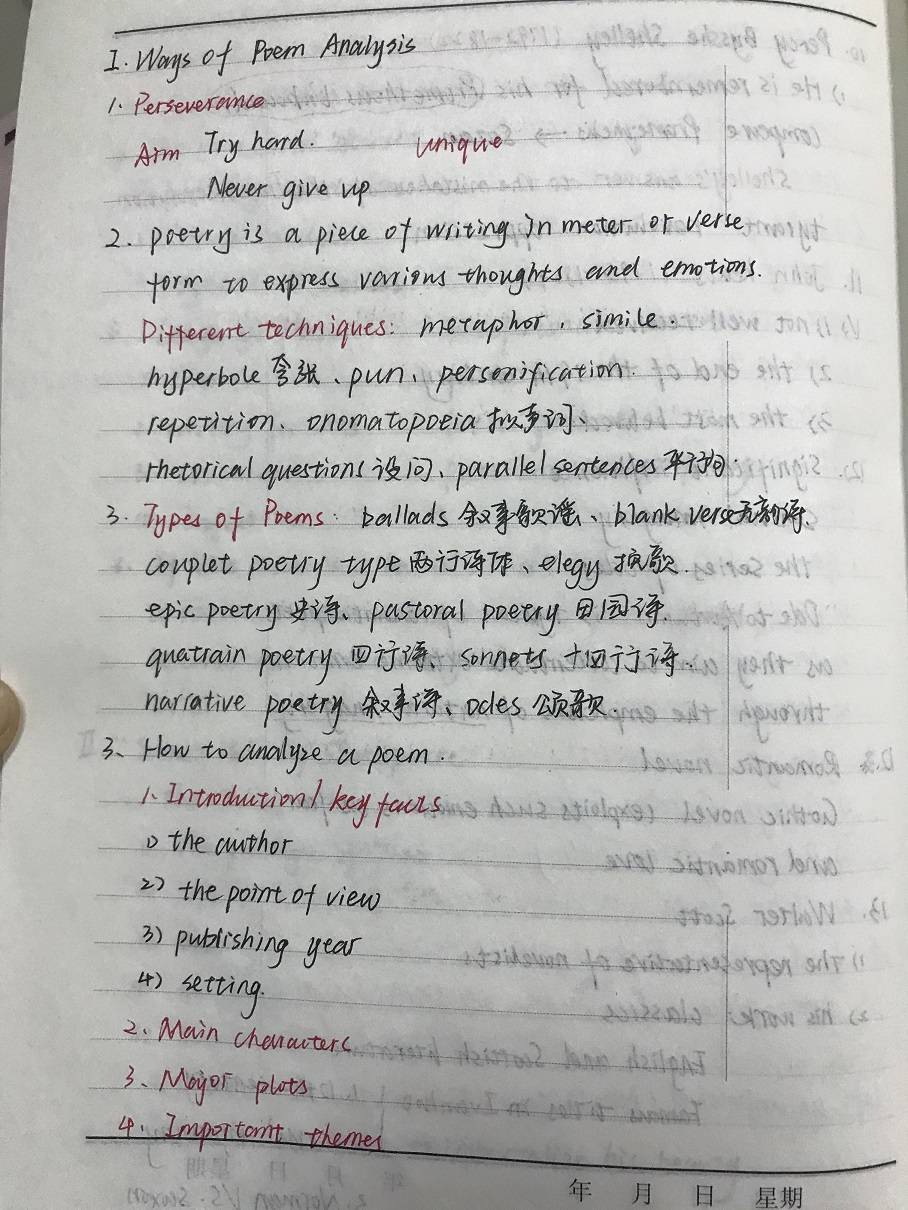 I. Ways of Poem Analysis
1. Perseverance
Aim Try hard. unique
Never give up
2. poetry is a piece of writing in meter or verse
form to express various thoughts and emotions.
Different techniques: metaphor、simile、
hyperbole 夸张、pun、personification.
repetition、onomatopoeia 拟声词、
rhetorical questions 设问、parallel sentences 平行句.
3. Types of Poems: ballads 叙事歌谣、blank verse无韵诗.
couplet poetry type 两行诗体、elegy 挽歌.
epic poetry 史诗、pastoral poetry 田园诗.
quatrain poetry 四行诗、sonnets 十四行诗.
narrative poetry 叙事诗、odes 颂歌.
3、How to analyze a poem.
1. Introduction / key facts
1) the author
2) the point of view
3) publishing year
4) setting.
2. Main characters
3、Major plots
4. Important themes
年 月 日 星期